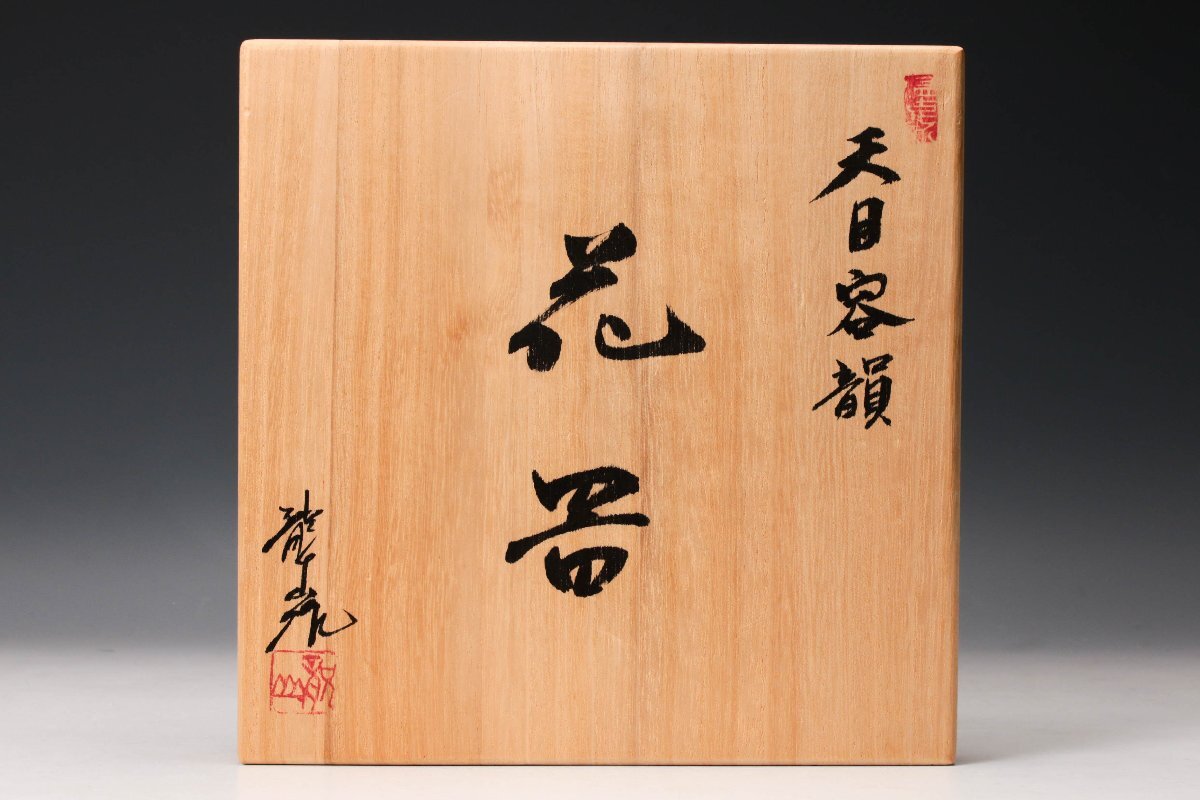 天目容韻
花器
龍山